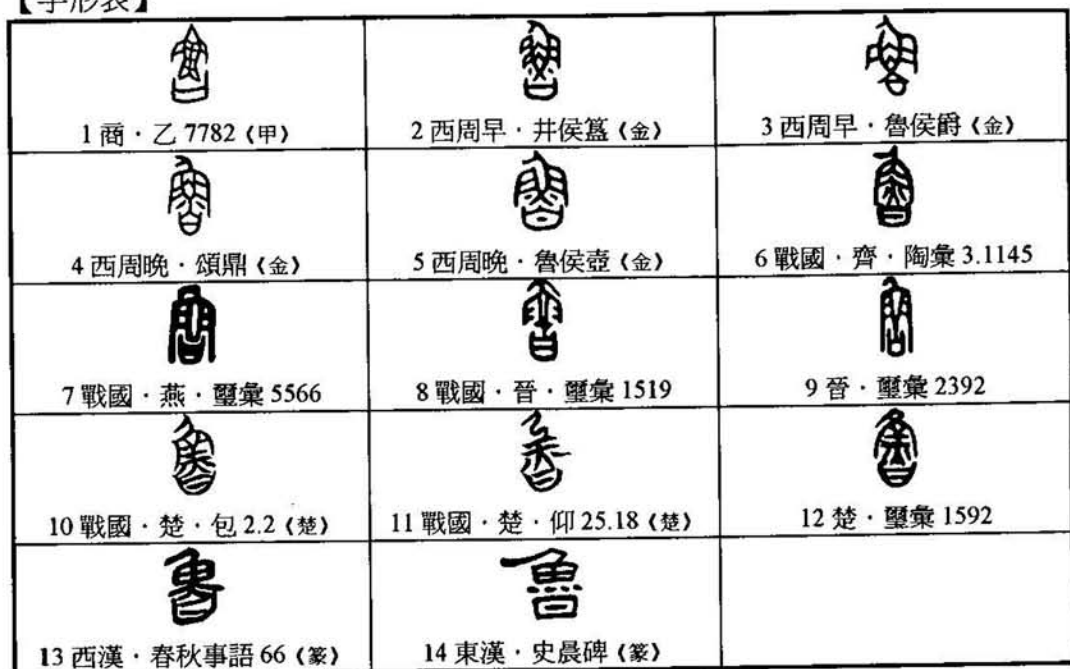 【字形表】
1 商．乙 7782《甲》
2 西周早．井侯簋《金》
3 西周早．魯侯爵《金》
4 西周晚．頌鼎《金》
5 西周晚．魯侯壺《金》
6 戰國．齊．陶彙 3.1145
7 戰國．燕．璽彙 5566
8 戰國．晉．璽彙 1519
9 晉．璽彙 2392
10 戰國．楚．包 2.2《楚》
11 戰國．楚．仰 25.18《楚》
12 楚．璽彙 1592
13 西漢．春秋事語 66《篆》
14 東漢．史晨碑《篆》